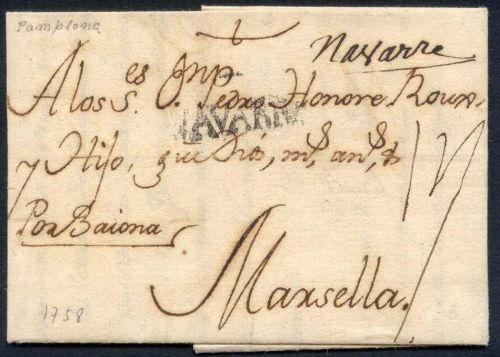 Pamplona
Navarre
A los S.es Pedro Honore Roux
NAVARRA
y Hijo, que Dios, m.s an.s &
Por Baiona
Marsella.
1758